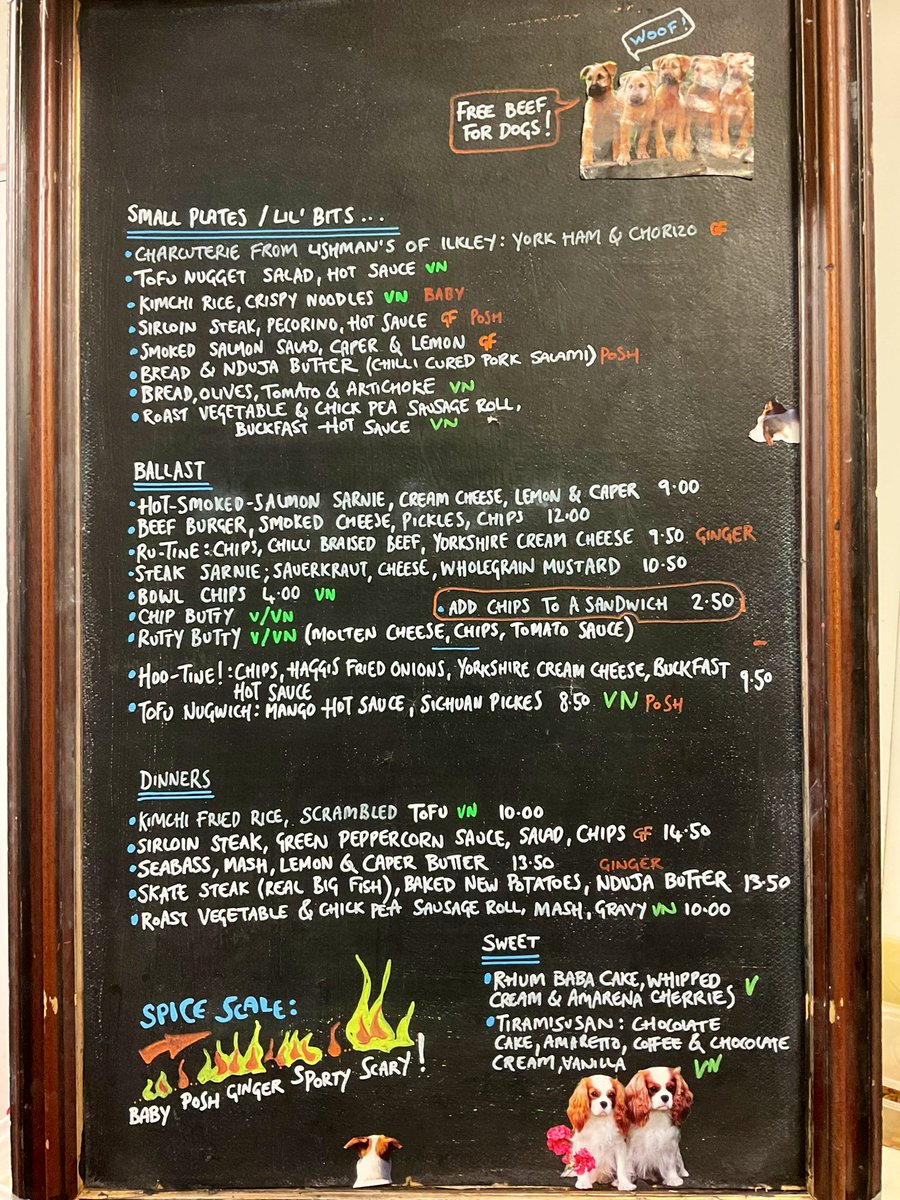 WOOF!
FREE BEEF
FOR DOGS!
SMALL PLATES / LIL' BITS ...
• CHARCUTERIE FROM LISHMAN'S OF ILKLEY: YORK HAM & CHORIZO GF
• TOFU NUGGET SALAD, HOT SAUCE VN
• KIMCHI RICE, CRISPY NOODLES VN BABY
• SIRLOIN STEAK, PECORINO, HOT SAUCE GF POSH
• SMOKED SALMON SALAD, CAPER & LEMON GF
• BREAD & NDUJA BUTTER (CHILLI CURED PORK SALAMI) POSH
• BREAD, OLIVES, TOMATO & ARTICHOKE VN
• ROAST VEGETABLE & CHICK PEA SAUSAGE ROLL,
BUCKFAST HOT SAUCE VN
BALLAST
• HOT-SMOKED-SALMON SARNIE, CREAM CHEESE, LEMON & CAPER 9.00
• BEEF BURGER, SMOKED CHEESE, PICKLES, CHIPS 12.00
• RU-TINE: CHIPS, CHILLI BRAISED BEEF, YORKSHIRE CREAM CHEESE 9.50 GINGER
• STEAK SARNIE; SAUERKRAUT, CHEESE, WHOLEGRAIN MUSTARD 10.50
• BOWL CHIPS 4.00 VN
• ADD CHIPS TO A SANDWICH 2.50
• CHIP BUTTY V/VN
• RUTTY BUTTY V/VN (MOLTEN CHEESE, CHIPS, TOMATO SAUCE)
• HOO-TINE!: CHIPS, HAGGIS FRIED ONIONS, YORKSHIRE CREAM CHEESE, BUCKFAST 9.50
HOT SAUCE
• TOFU NUGWICH: MANGO HOT SAUCE, SICHUAN PICKES 8.50 VN POSH
DINNERS
• KIMCHI FRIED RICE, SCRAMBLED TOFU VN 10.00
• SIRLOIN STEAK, GREEN PEPPERCORN SAUCE, SALAD, CHIPS GF 14.50
• SEABASS, MASH, LEMON & CAPER BUTTER 13.50 GINGER
• SKATE STEAK (REAL BIG FISH), BAKED NEW POTATOES, NDUJA BUTTER 13.50
• ROAST VEGETABLE & CHICK PEA SAUSAGE ROLL, MASH, GRAVY VN 10.00
SWEET
• RHUM BABA CAKE, WHIPPED
CREAM & AMARENA CHERRIES V
• TIRAMISUSAN: CHOCOLATE
CAKE, AMARETTO, COFFEE & CHOCOLATE
CREAM, VANILLA VN
SPICE SCALE:
BABY POSH GINGER SPORTY SCARY!